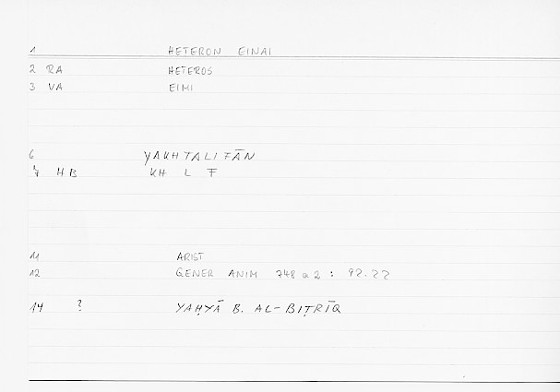 1 HETERON EINAI
2 RA HETEROS
3 VA EIMI
6 YAKHTALIFĀN
7 HB KH L F
11 ARIST
12 GENER ANIM 748 a 2 : 92.22
14 ? YAḤYĀ B. AL-BIṬRĪQ